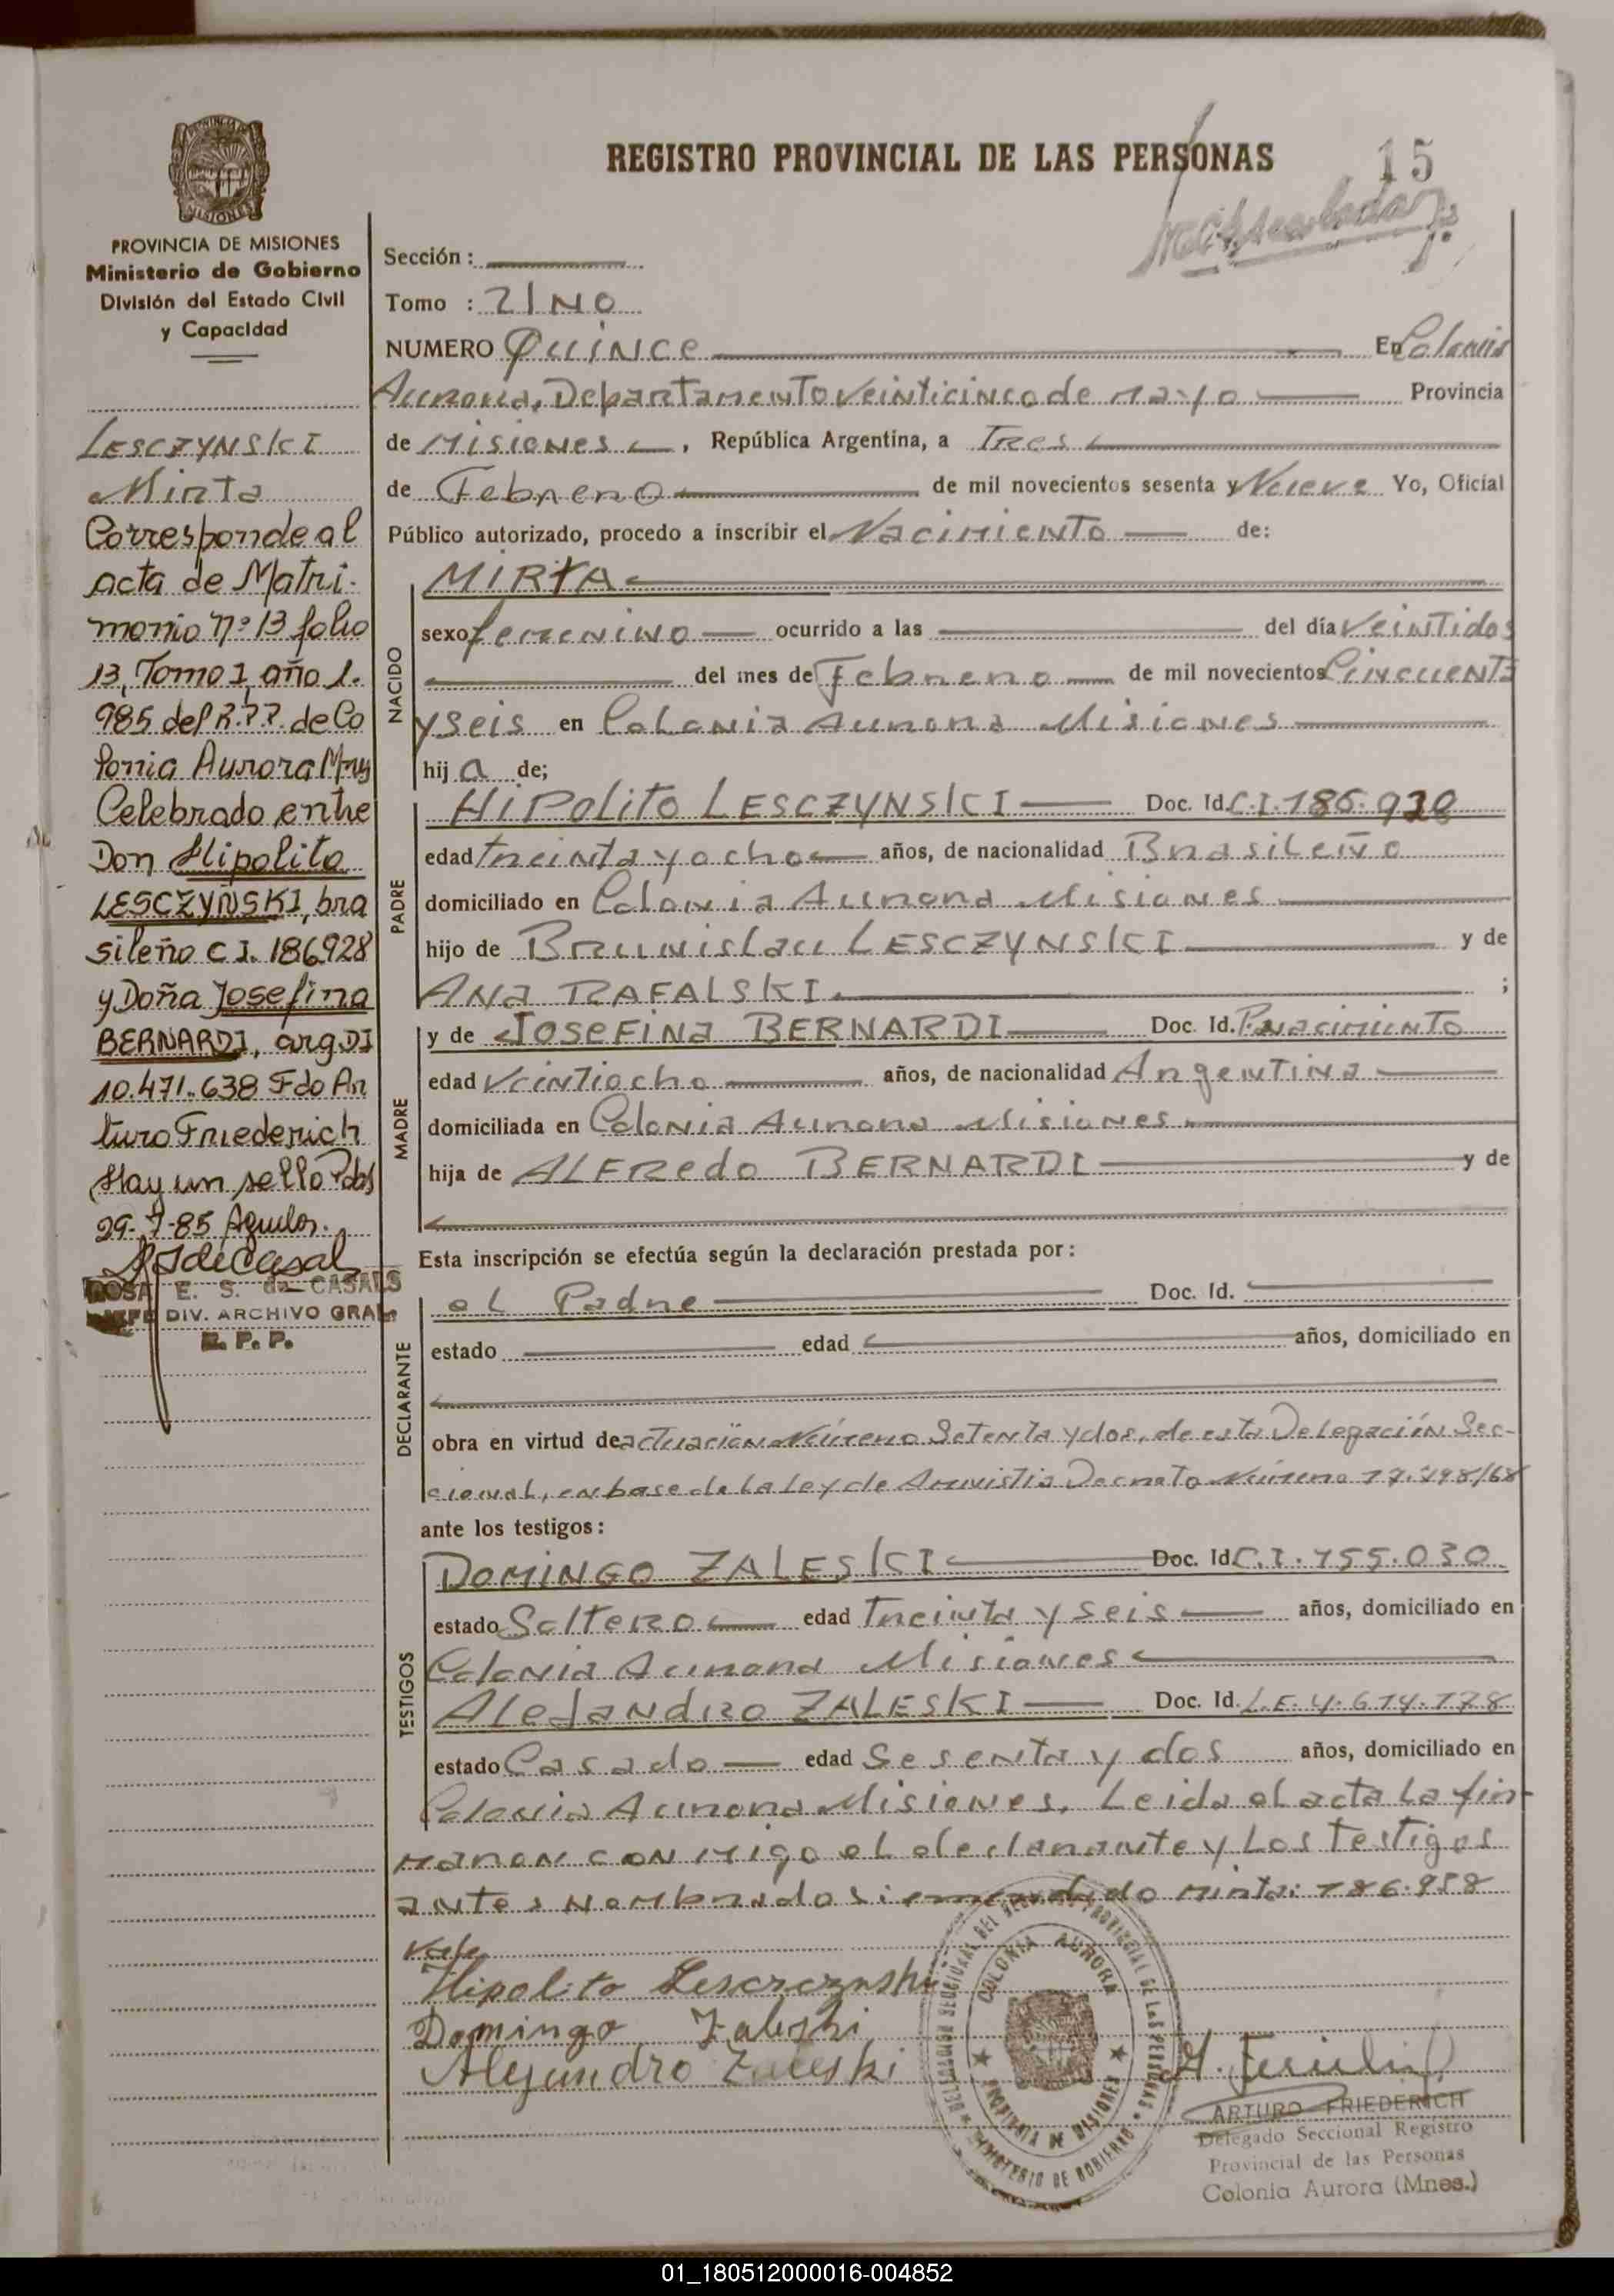 REGISTRO PROVINCIAL DE LAS PERSONAS
15
PROVINCIA DE MISIONES
Ministerio de Gobierno
División del Estado Civil
y Capacidad
LESCZYNSKI
Mirta
Corresponde al
acta de Matri-
monio nº 13 folio
13, Tomo 1, año 1.
985 del R.P.P. de Co
lonia Aurora Mnes
Celebrado entre
Don Hipolito
LESCZYÑSKI, bra
sileño C I. 186928
y Doña Josefina
BERNARDI, arg DI
10.471.638 Fdo Ar
turo Friederich
Hay un sello Pdas
29-7-85
ROSA E. S. de CASALS
JEFE DIV. ARCHIVO GRAL.
R. P. P.
Sección :
Tomo : UNO
NUMERO Quince En Colonia
Aurora, Departamento Veinticinco de Mayo Provincia
de Misiones, República Argentina, a Tres
de Febrero de mil novecientos sesenta y Nueve Yo, Oficial
Público autorizado, procedo a inscribir el Nacimiento de:
NACIDO
MIRTA
sexo femenino ocurrido a las del día veintidos
del mes de Febrero de mil novecientos Cincuenta
y seis en Colonia Aurora Misiones
hija de;
PADRE
HIPOLITO LESCZYNSKI Doc. Id. C.I. 186.928
edad treinta y ocho años, de nacionalidad Brasileño
domiciliado en Colonia Aurora Misiones
hijo de Brunislau LESCZYNSKI y de
ANA RAFALSKI. ;
MADRE
y de JOSEFINA BERNARDI Doc. Id. P. nacimiento
edad Veintiocho años, de nacionalidad Argentina
domiciliada en Colonia Aurora Misiones
hija de ALFREDO BERNARDI y de
Esta inscripción se efectúa según la declaración prestada por:
DECLARANTE
el Padre Doc. Id.
estado edad años, domiciliado en
obra en virtud de actuación Número Setenta y dos, de esta Delegación Sec-
cional, en base de la Ley de Amnistia Decreto Número 17.798/68
ante los testigos:
TESTIGOS
DOMINGO ZALESKI Doc. Id. C.I. 155.030
estado Soltero edad Treinta y seis años, domiciliado en
Colonia Aurora Misiones
ALEJANDRO ZALESKI Doc. Id. L.E. 4.614.178
estado Casado edad Sesenta y dos años, domiciliado en
Colonia Aurora Misiones. Leida el acta la fir-
maron conmigo el declarante y los testigos
antes nombrados: enmendado Mirta: 186.928
Vale
Hipolito Lescrczynski
Domingo Zaleski
Alejandro Zaleski
DELEGACION SECCIONAL DEL REGISTRO PROVINCIAL DE LAS PERSONAS
MINISTERIO DE GOBIERNO
COLONIA AURORA
PROVINCIA DE MISIONES
ARTURO FRIEDERICH
Delegado Seccional Registro
Provincial de las Personas
Colonia Aurora (Mnes.)
01_180512000016-004852